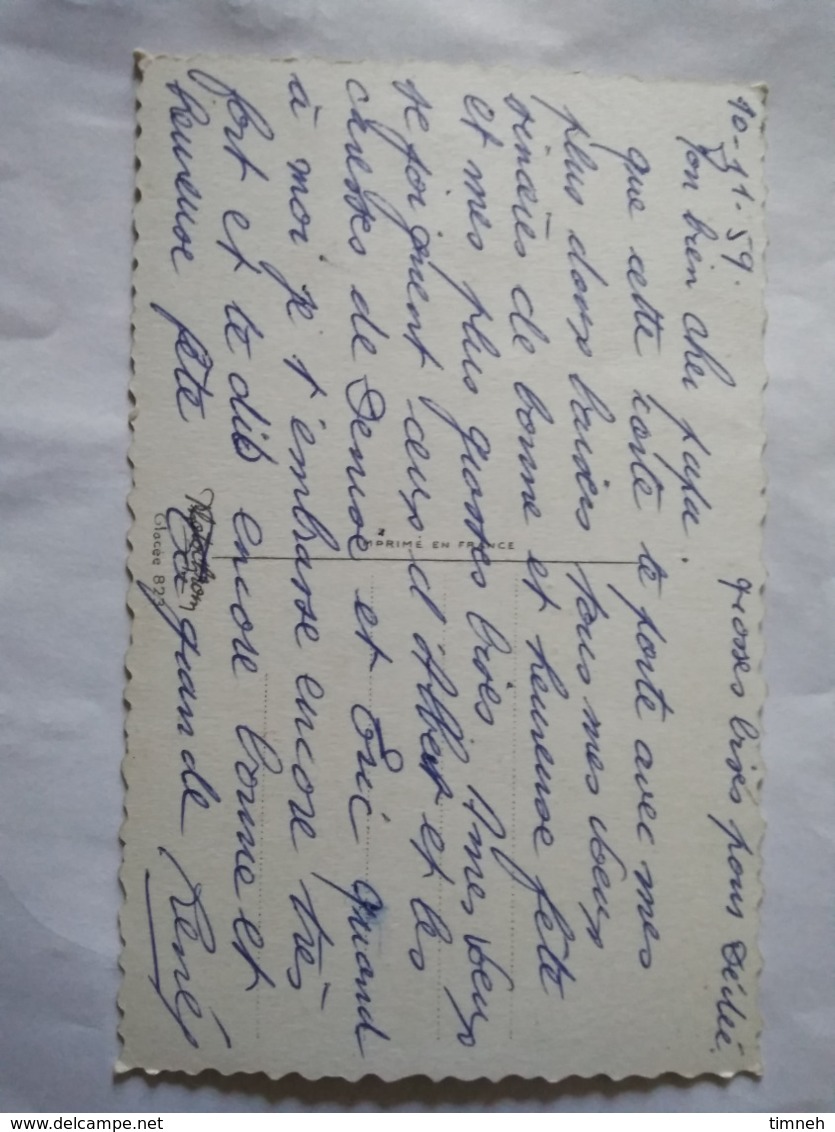 10-11-59.
grosses bises pour Dédée.
Mon bien cher papa.
que cette carte te porte avec mes
plus doux baisers tous mes voeux
sincères de bonne et heureuse fête
et mes plus grosses bises. A mes voeux
se joignent ceux d'Albert et les
caresses de Denise et Eric quand
à moi je t'embrasse encore très
fort et te dis encore bonne et
heureuse fête
Ta grande Renée
IMPRIMÉ EN FRANCE
Glacée 823
delcampe.net
timneh